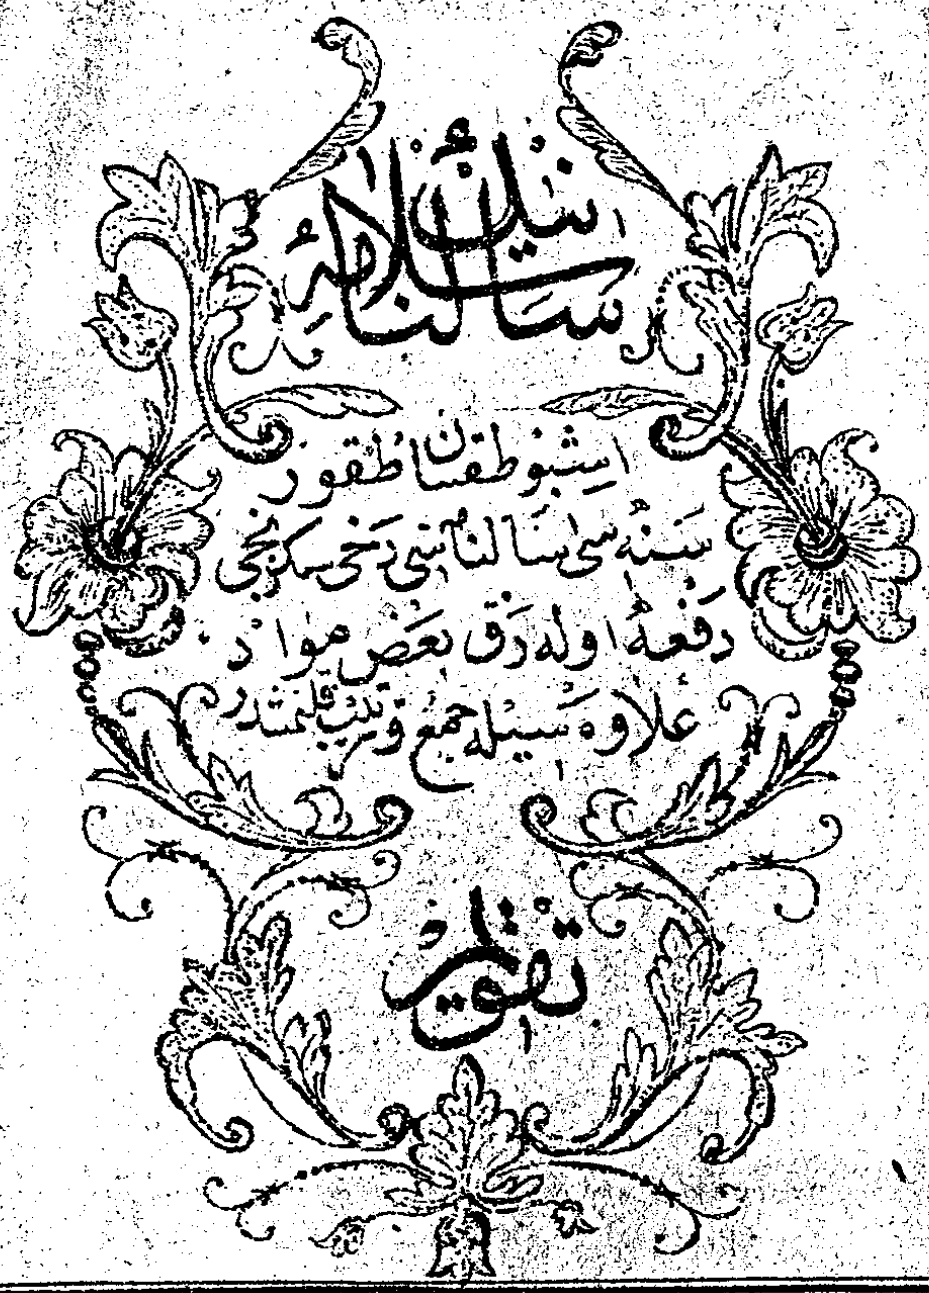 سالنامه
اشبو طقسان طقوز
سنه سی سالنامه سی دخی سکزنجی
دفعه اوله رق بعض مواد
علاوه سیله جمع و ترتیب قلنمشدر
تقویم